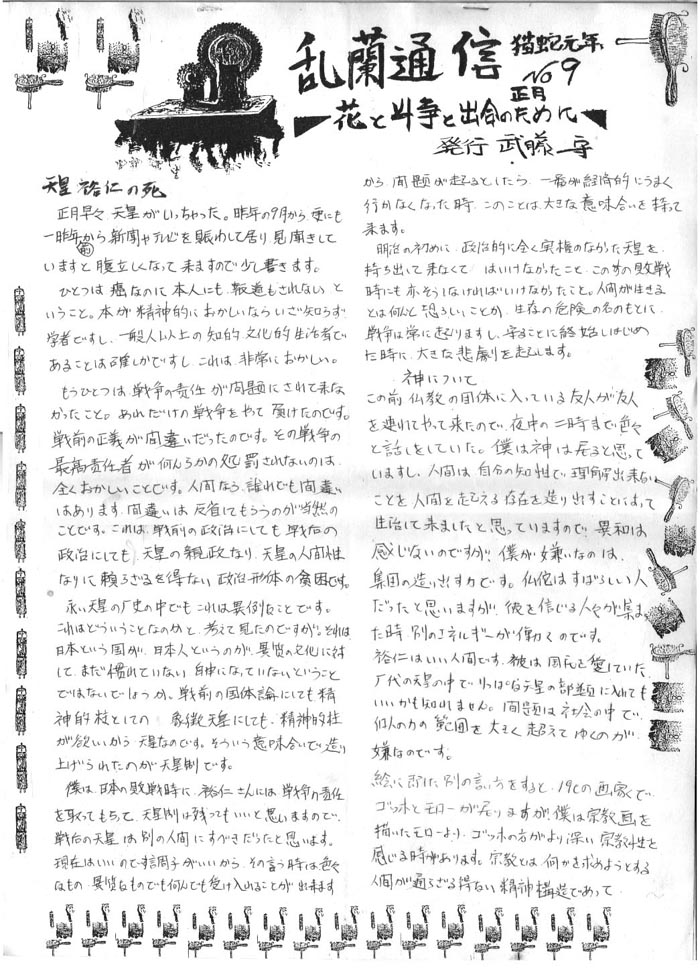 乱蘭通信
猫蛇元年
No 9
正月
花と斗争と出会のために
発行 武藤 守
天皇 裕仁の死
正月早々、天皇がいっちゃった。昨年の9月から、更にも
一昨年から新聞やテレビを賑わして居り、見聞きして
いますと腹立しくなって来ますので少し書きます。
ひとつは癌なのに本人にも、報道もされない と
いうこと。本が精神的におかしいならいざ知らず
学者ですし、一般人以上の知的、文化的生活者で
あることは確しかですし、これは、非常におかしい。
もうひとつは戦争の責任が問題にされて来な
かったこと。あれだけの戦争をやって負けたのです。
戦前の正義が間違いだったのです。その戦争の
最高責任者が何んらかの処罰されないのは、
全くおかしいことです。人間なら、誰れでも間違い
はあります。間違いは反省してもらうのが当然の
ことです。これは、戦前の政治にしても戦后の
政治にしても、天皇の親政なり、天皇の人間性
なりに頼らざるを得ない政治形体の貧困です。
永い天皇の歴史の中でもこれは異例なことです。
これはどういうことなのかと、考えて見たのですが。それは
日本という国が、日本人というのが、異質の文化に対
して、まだ慣れていない 自由になっていないということ
ではないでしょうか。戦前の国体論にしても精
神的柱としての 象徴天皇にしても、精神的柱
が欲いから 天皇なのです。そういう意味合いで造り
上げられたのが天皇制です。
僕は、日本の敗戦時に、裕仁さんには戦争の責任
を取ってもらって、天皇制は残ってもいいと思いますので、
戦后の天皇は別の人間にすべきだったと思います。
現在はいいのです。調子がいいから、その言う時は色々
なもの、異質なものでも何んでも受け入れることが出来ます
から、問題が起るとしたら、一番が経済的にうまく
行かなくなった時、このことは大きな意味合いを持って
来ます。
明治の初めに、政治的に全く実権のなかった天皇を、
持ち出して来なくてはいけなかったこと、この時の敗戦
時にも亦そうしなければいけなかったこと。人間が生きる
とは何んと恐ろしいことか、生存の危険の名のもとに、
戦争は常に起りますし、守ることに終始しはじめ
た時に、大きな悲劇を起します。
神について
この前、仏教の団体に入っている友人が友人
を連れてやって来たので、夜中の二時まで色々
と話しをしていた。僕は神は居ると思って
いますし、人間は、自分の知性で、理解出来ない
ことを人間を超える存在を造り出すことによって
生活して来ましたと思っていますので、異和は
感じないのですが、僕が嫌いなのは、
集団の造り出す力です。仏陀はすばらしい人
だったと思いますが、彼を信じる人々が集まっ
た時、別のエネルギーが働くのです。
裕仁はいい人間です。彼は国民を愛していた
歴代の天皇の中で、りっぱな天皇の部類に入れても
いいかも知れません。問題は社会の中で、
個人の力の範囲を大きく超えてゆくのが、
嫌なのです。
絵に即した別の言い方をすると、19Cの画家で、
ゴッホとモローが居りますが、僕は宗教画を
描いたモローより、ゴッホの方がより深い宗教性を
感じる時があります。宗教とは、何かを求めようとする
人間が通らざる得ない精神構造であって